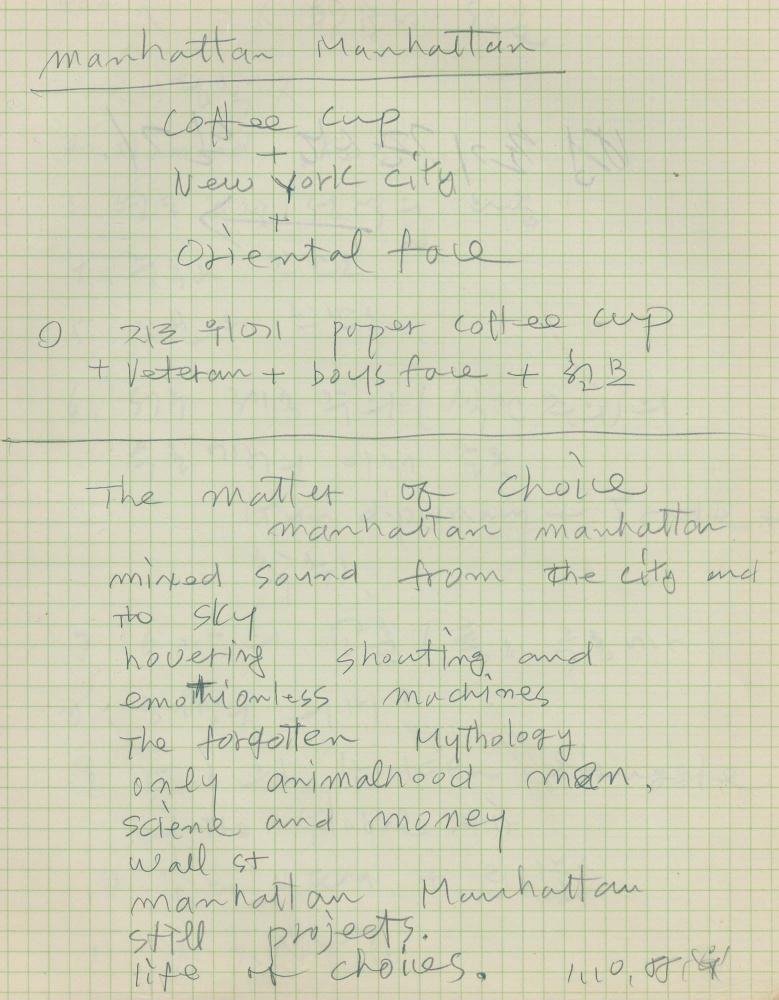 manhattan Manhattan
Coffee Cup
+
New York City
+
Oriental face
지도 위에 paper coffee cup
+ Veteran + boys face +
The matter of choice
manhattan manhattan
mixed sound from the city and
to sky
hovering shouting and
emothionless machines
The forgotten Mythology
only animalhood man,
science and money
wall st
manhattan Manhattan
still projects.
life of choices.